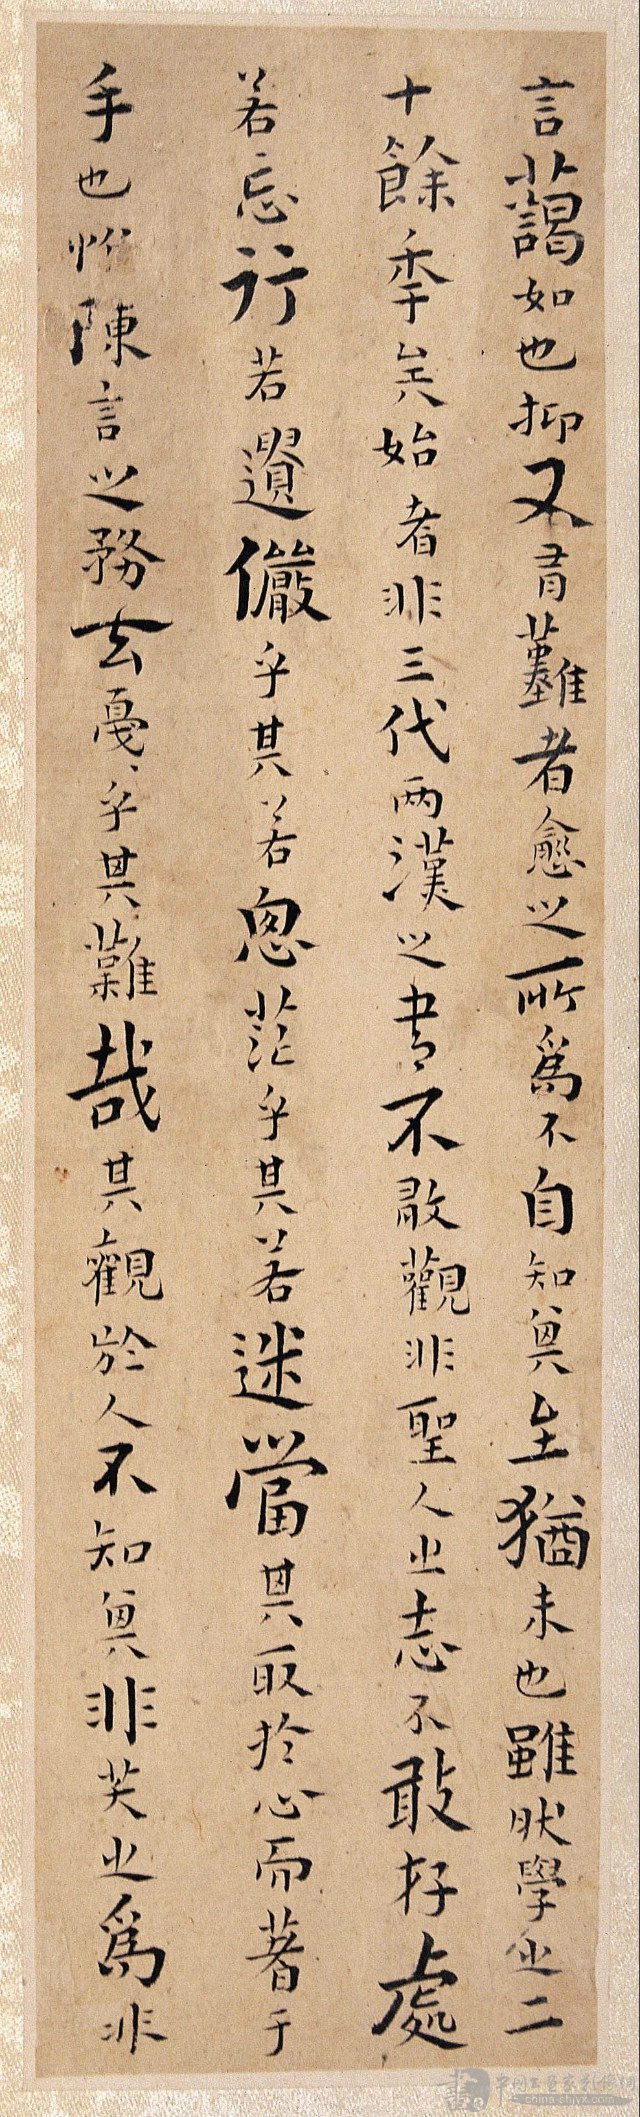 言藹如也抑又有難者愈之所爲不自知其至猶未也雖然學之二
十餘年矣始者非三代兩漢之書不敢觀非聖人之志不敢存處
若忘行若遺儼乎其若思茫乎其若迷當其取於心而著于
手也惟陳言之務去戛〻乎其難哉其觀於人不知其非笑之爲非